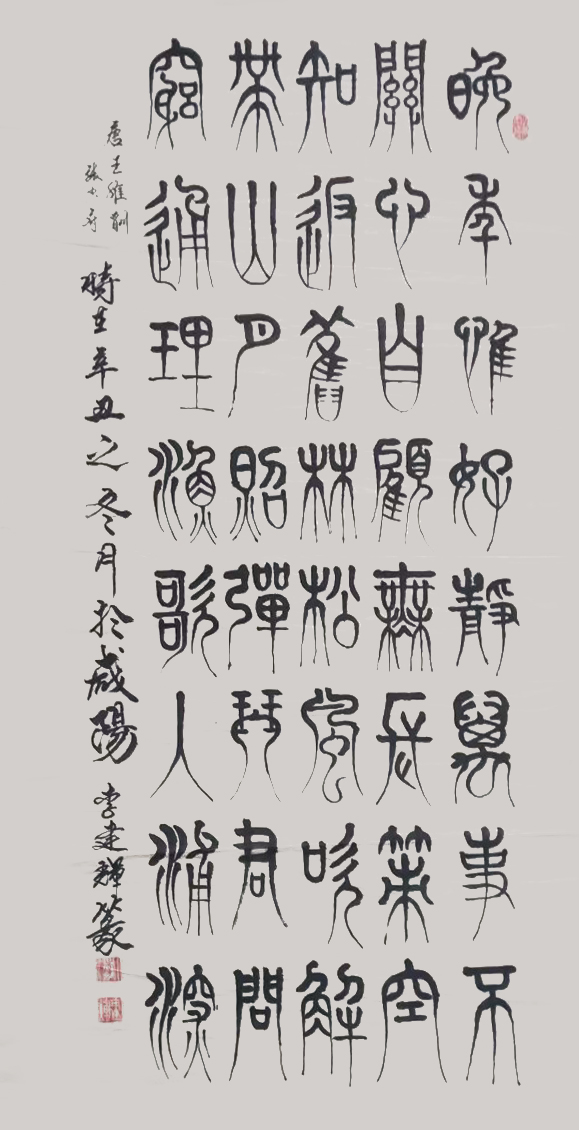 晚年惟好靜萬事不
關心自顧無長策空
知返舊林松風吹解
帶山月照彈琴君問
窮通理漁歌入浦深
唐王維酬
張少府
時在辛丑之冬月於咸陽 李建輝篆